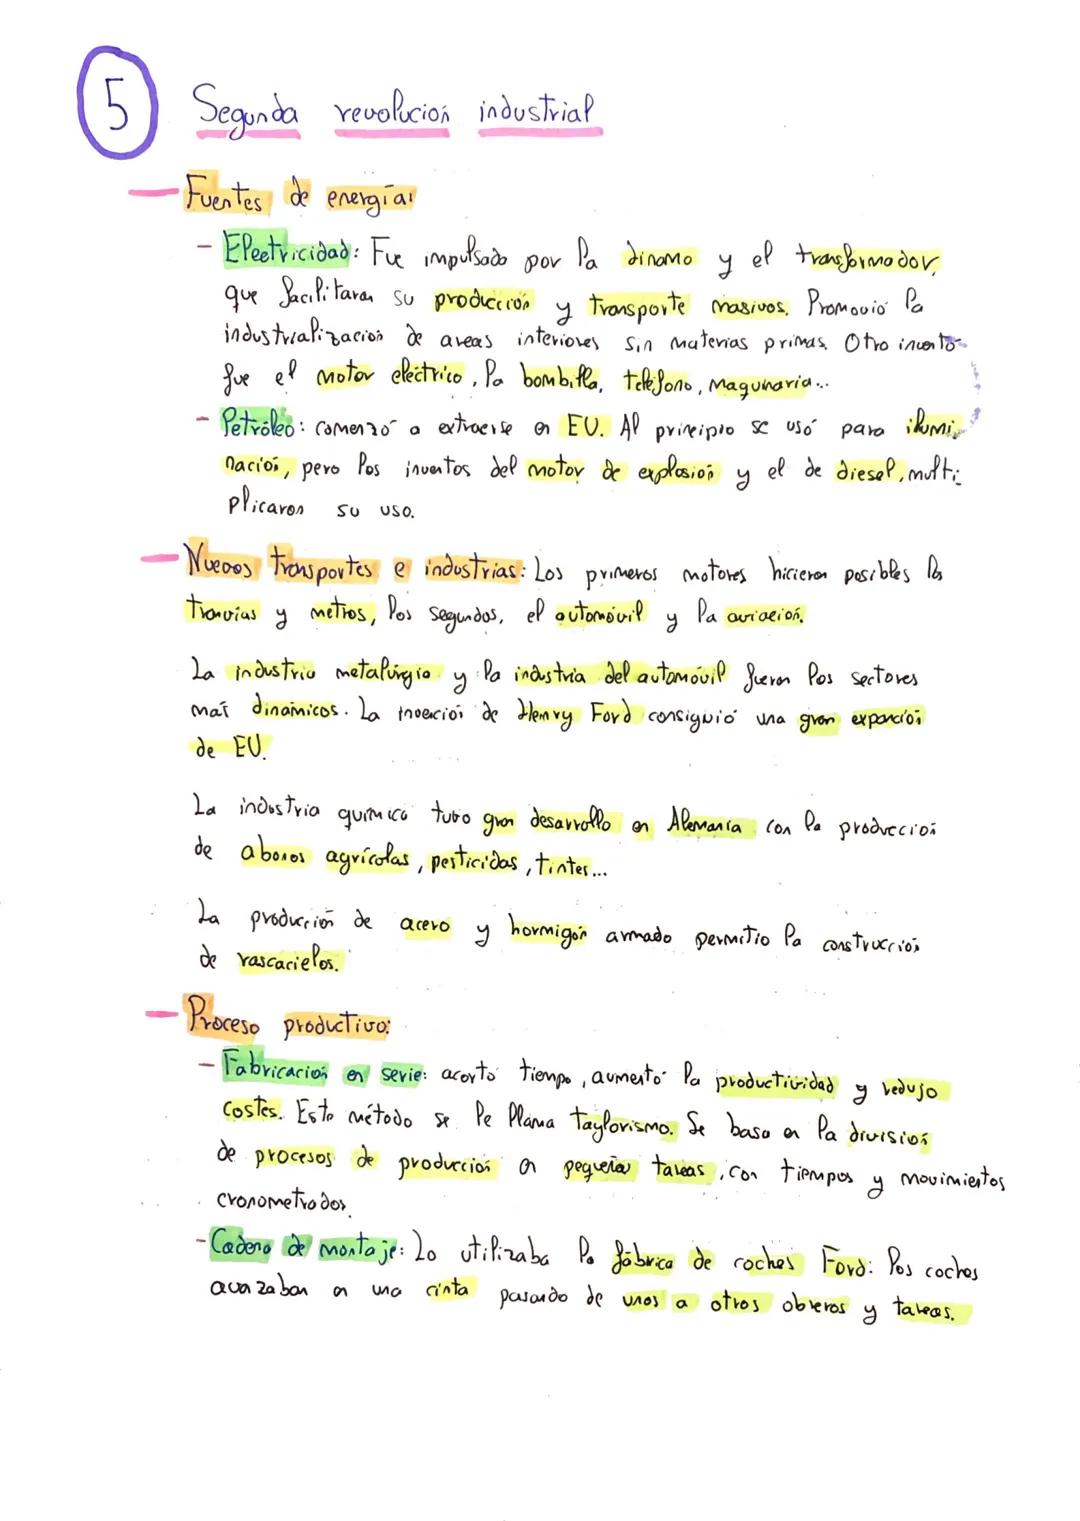 5 Segunda revolución industrial
Fuentes de energía:
- Electricidad: Fue impulsado por la dinamo y el transformador,
que facilitaron su producción y transporte masivos. Promovió la
industrialización de areas interiores sin materias primas. Otro invento
fue el motor eléctrico, la bombilla, teléfono, maquinaria...
- Petróleo: comenzó a extraerse en EU. Al principio se usó para ilumi_
nación, pero los inventos del motor de explosión y el de diesel, multi_
plicaron su uso.
Nuevos transportes e industrias: Los primeros motores hicieron posibles los
tranvías y metros, los segundos, el automóvil y la aviación.
La industria metalúrgia y la industria del automóvil fueron los sectores
más dinámicos. La inveción de Henry Ford consiguió una gran expanción
de EU.
La industria química tuvo gran desarrollo en Alemania con la producción
de abonos agrícolas, pesticidas, tintes...
La producción de acero y hormigón armado permitio la construcción
de rascacielos.
Proceso productivo:
- Fabricación en serie: acortó tiempo, aumentó la productividad y redujo
costes. Este método se le llama taylorismo. Se basa en la división
de procesos de producción en pequeñas tareas, con tiempos y movimientos
cronometrados.
- Cadena de montaje: Lo utilizaba la fábrica de coches Ford: los coches
avanzaban en una cinta pasando de unos a otros obreros y tareas.